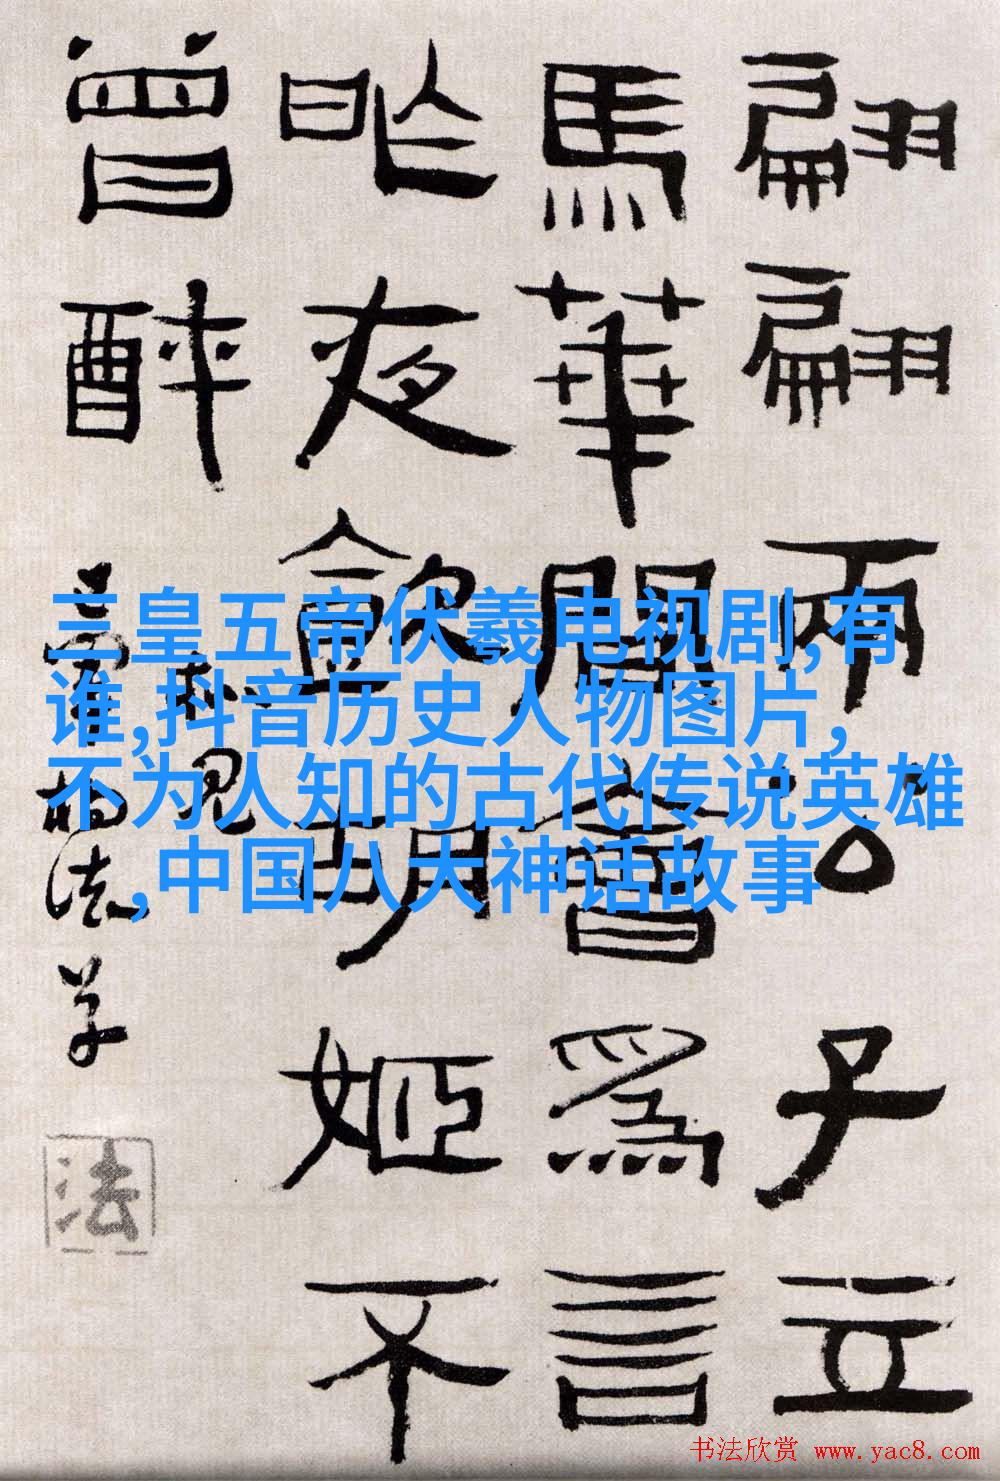 翩翩兩公子立
馬華間會爲言
昨夜飲胡姬不
曾醉
法
三皇五帝伏羲电视剧,有
谁,抖音历史人物图片,
不为人知的古代传说英雄
,中国八大神话故事
书法欣赏 www.yac8.com